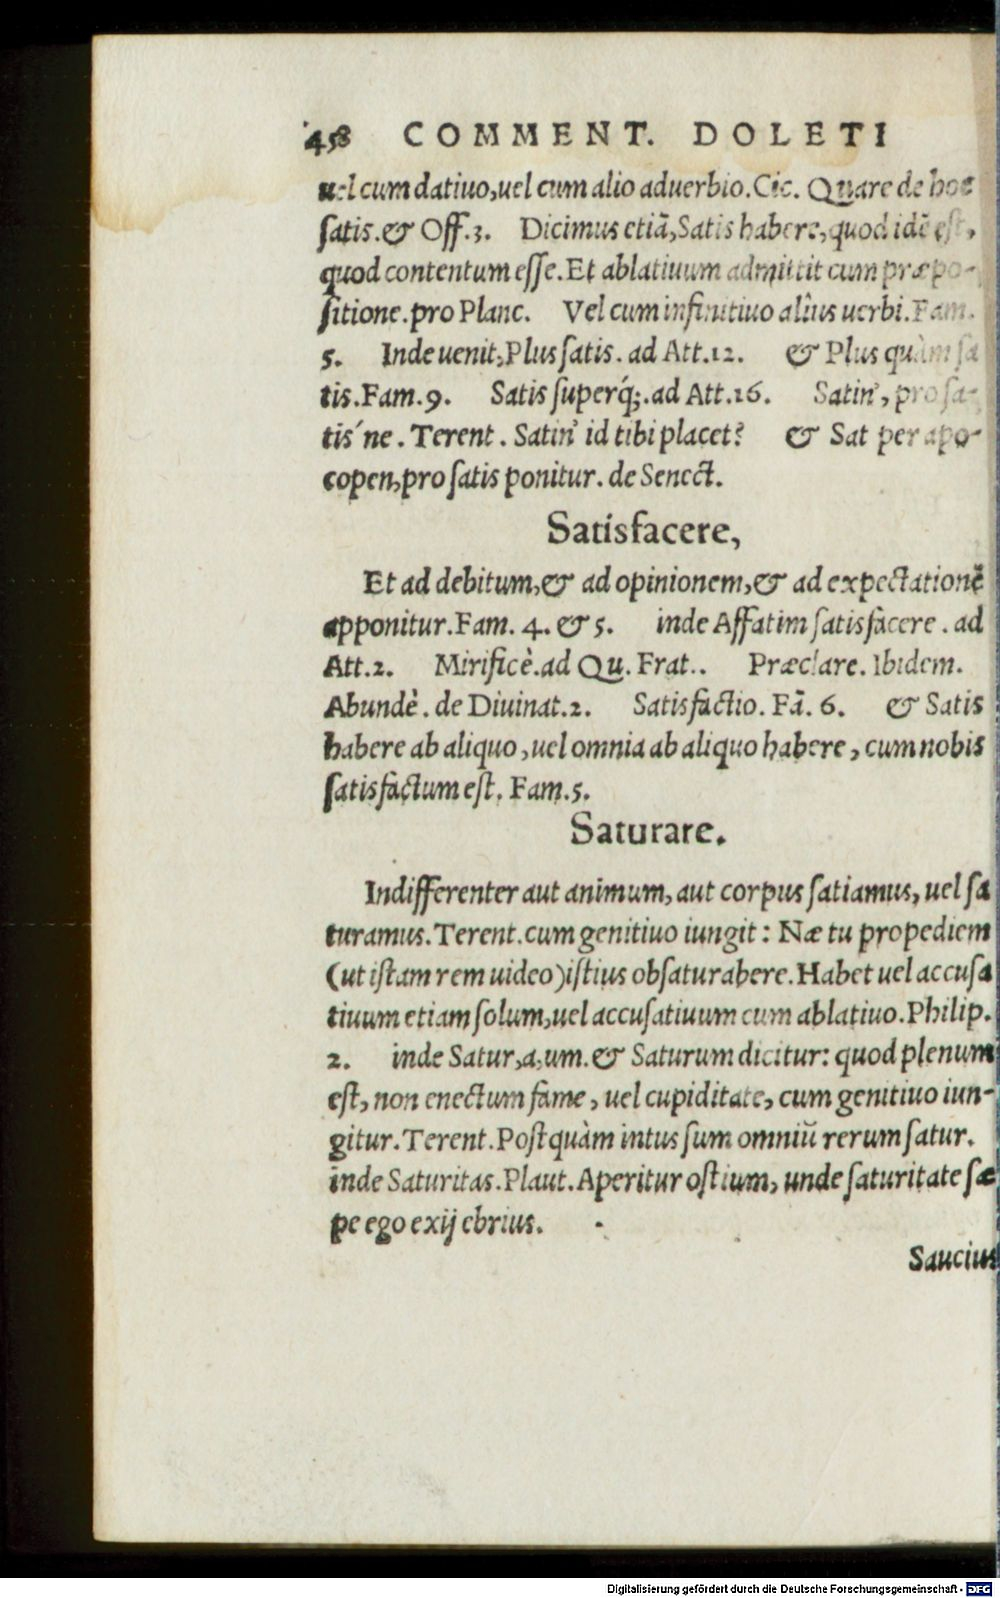 458 COMMENT. DOLETI
uel cum datiuo, uel cum alio aduerbio. Cic. Quare de hoc
satis. & Off. 3. Dicimus etiã, Satis habere, quod idẽ est,
quod contentum esse. Et ablatiuum admittit cum præpo-
sitione. pro Planc. Vel cum infinitiuo alius uerbi. Fam.
5. Inde uenit, Plus satis. ad Att. 12. & Plus quàm sa
tis. Fam. 9. Satis superq́;. ad Att. 16. Satin', pro sa-
tis´ne. Terent. Satin' id tibi placet? & Sat per apo-
copen, pro satis ponitur. de Senect.
Satisfacere,
Et ad debitum, & ad opinionem, & ad expectationẽ
apponitur. Fam. 4. & 5. inde Affatim satisfacere. ad
Att. 2. Mirificè. ad Qu. Frat.. Præclare. Ibidem.
Abundè. de Diuinat. 2. Satisfactio. Fã. 6. & Satis
habere ab aliquo, uel omnia ab aliquo habere, cum nobis
satisfactum est. Fam. 5.
Saturare.
Indifferenter aut animum, aut corpus satiamus, uel sa
turamus. Terent. cum genitiuo iungit: Næ tu propediem
(ut istam rem uideo) istius obsaturabere. Habet uel accusa
tiuum etiam solum, uel accusatiuum cum ablatiuo. Philip.
2. inde Satur, a, um. & Saturum dicitur: quod plenum
est, non enectum fame, uel cupiditate, cum genitiuo iun-
gitur. Terent. Postquàm intus sum omniũ rerum satur.
inde Saturitas. Plaut. Aperitur ostium, unde saturitate sæ
pe ego exij ebrius.
Saucius
Digitalisierung gefördert durch die Deutsche Forschungsgemeinschaft - DFG